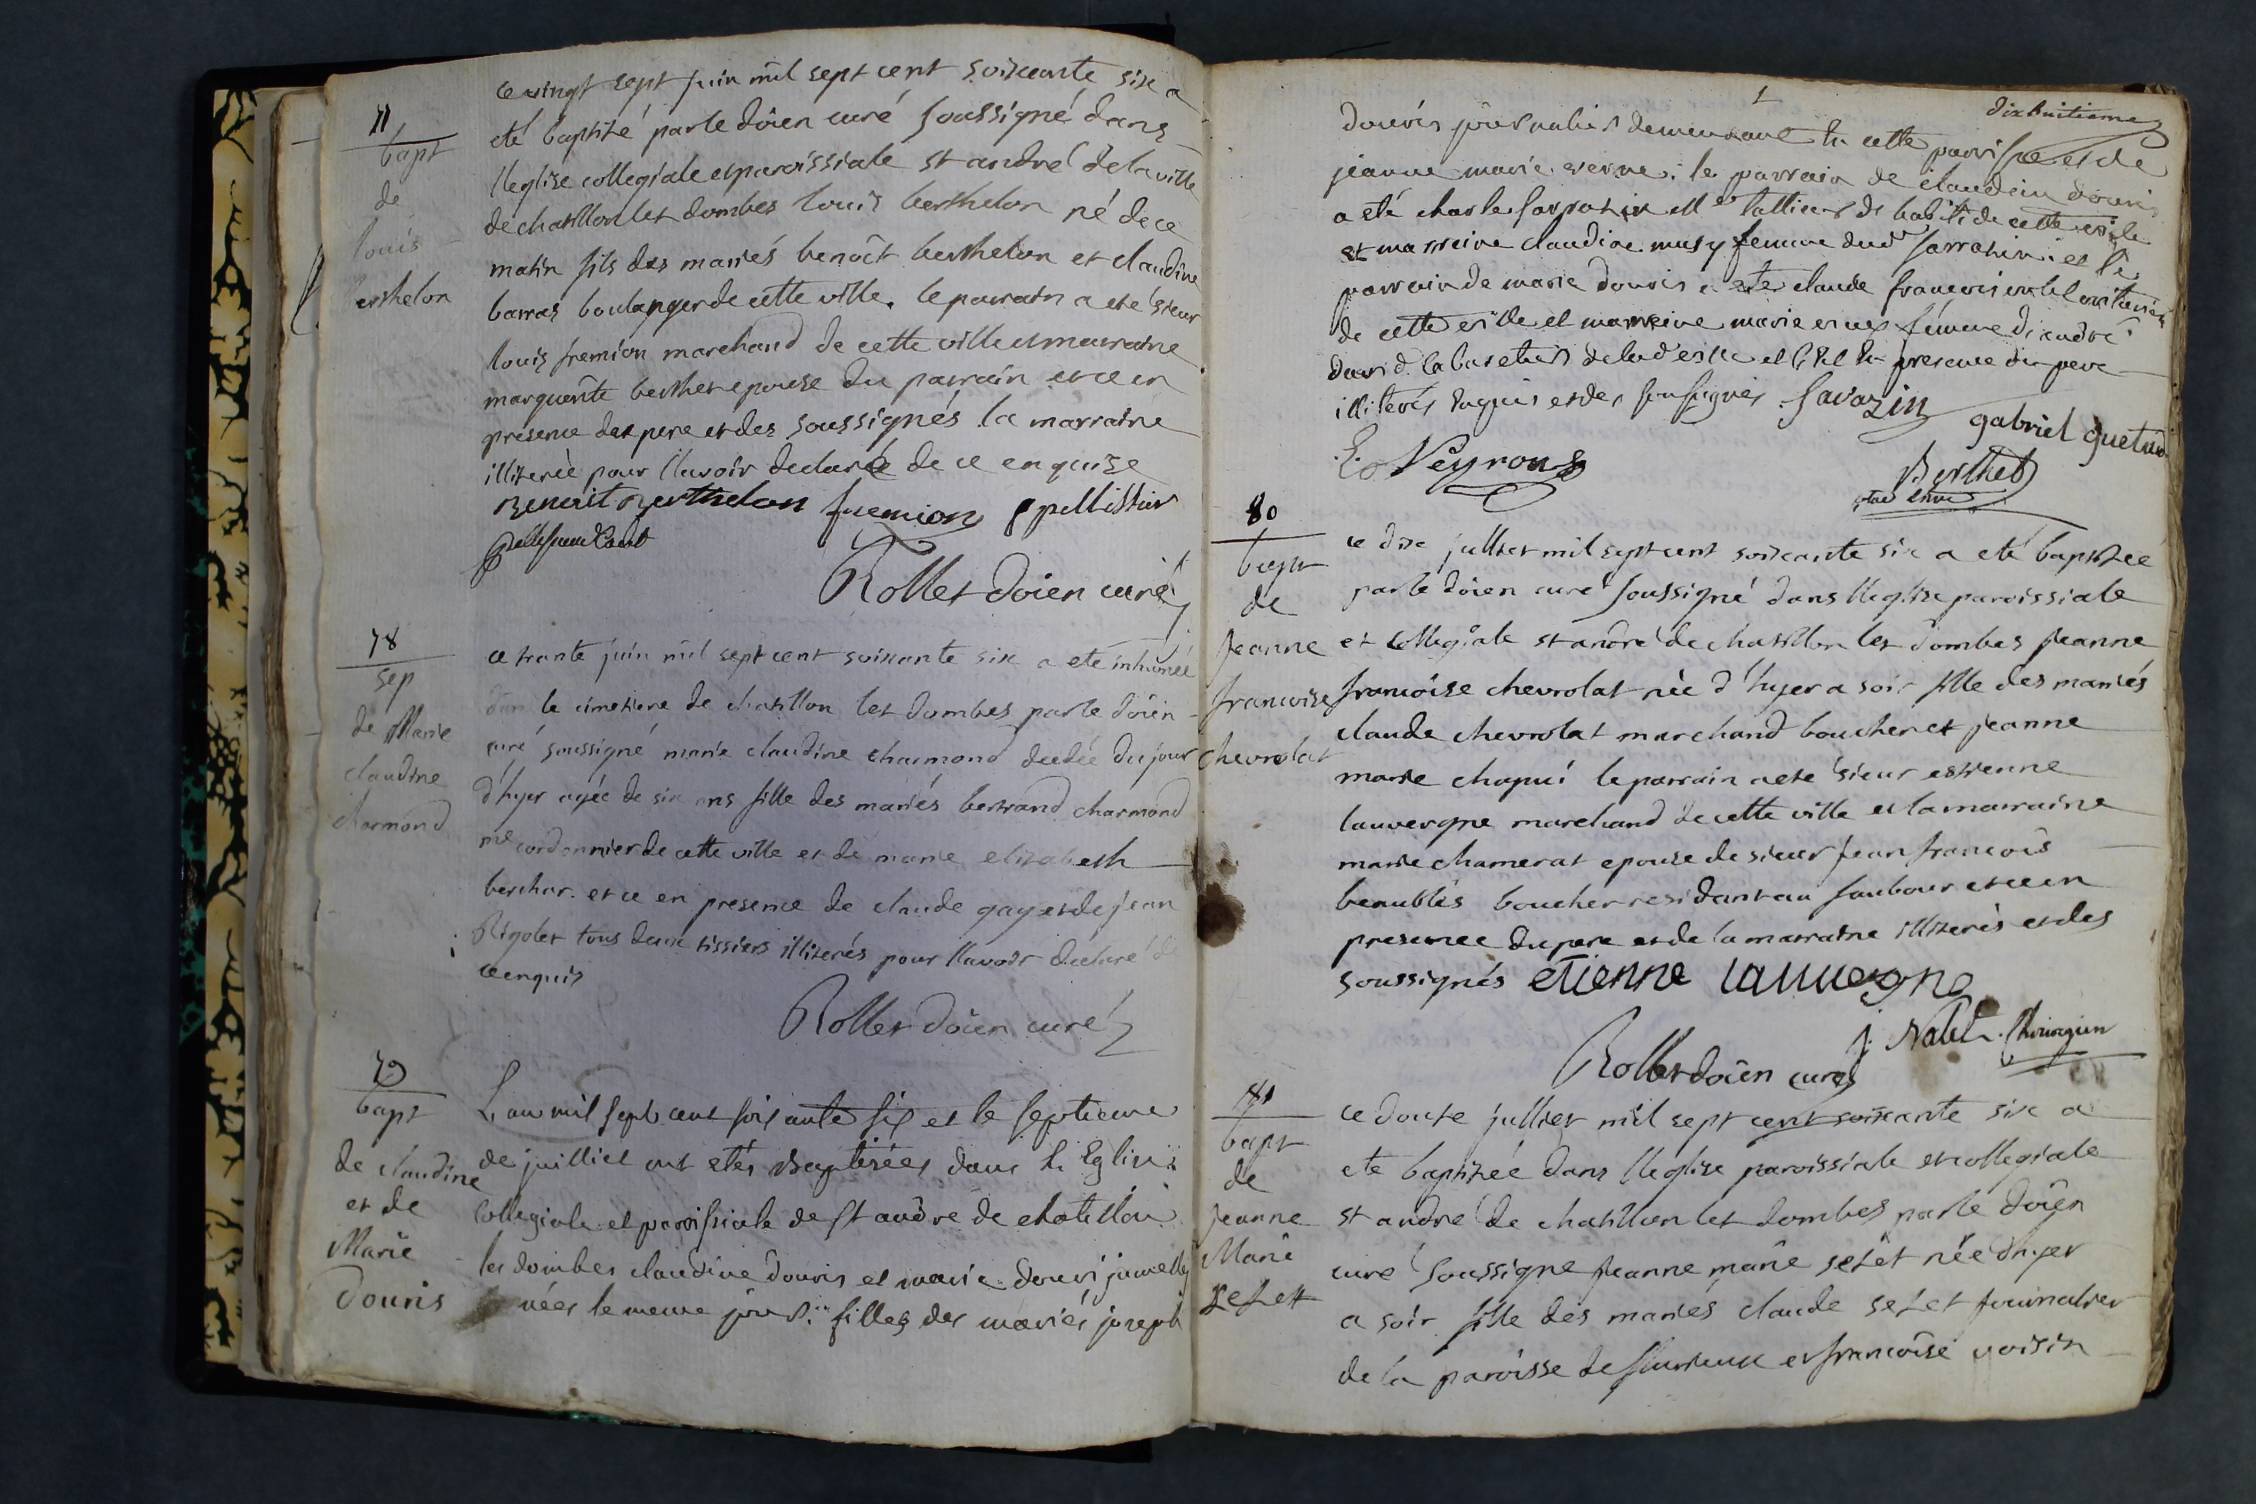 77
bapt
de
louis
berthelon
ce vingt sept juin mil sept cent soixante six a
eté baptizé par le doïen curé soussigné dans
l'eglize collegiale et paroissiale st andré de la ville
de chatillon les dombes louis berthelon né de ce
matin fils des mariés benoît berthelon et claudine
barras boulanger de cette ville. le parrain a ete sieur
louis fremion marchand de cette ville et marraine
marguerite berthet epouse du parrain et ce en
presence des pere et des soussignés la marraine
illiterée pour l'avoir declaré de ce enquise
Benoit Berthelon fremion pellissier
Rollet doïen curé
78
sep
de Marie
claudine
charmond
ce trante juin mil sept cent soixante six a ete inhumée
dans le cimetiere de chatillon les dombes par le doïen
curé soussigné marie claudine charmond decedée du jour
d'hyer agée de six ans fille des mariés bertrand charmond
me cordonnier de cette ville et de marie elizabeth
berchar. et ce en presence de claude gay et de jean
Rigolet tous deux tissiers illiterés pour l'avoir declaré de
ce enquis
Rollet doïen curé
79
bapt
de claudine
et de
Marie
douris
L'an mil sept cent soixante six et le septieme
de juilliet ont etés Baptizées dans l'Eglise
collegiale et paroissiale de St andré de chatillon
les dombes claudine douris et marie douri jumelles
nées le meme jour filles des mariés joseph
dixhuitieme
douris journalier demeurant en cette parroisse et de
jeanne marie verne; le parrain de claudine douris
a eté charle sarrasin me tallieur de habits de cette ville
et marreine claudine musy femme dud sarrasin: et le
parrain de marie douris a ete claude francois
de cette ville et marreine marie femme d'andré
david cabaretier de lad ville et ce en presence du pere
illiterés enquis et des soussignés Sarazin
gabriel guetand
E. Neyroud
Berthet
80
bapt
de
Jeanne
francoise
chevrolat
ce dix julliet mil sept cent soixante six a eté baptizée
par le doïen curé soussigné dans l'eglize paroissiale
et collegiale st andré de chatillon les dombes jeanne
francoise chevrolat née d'hyer a soir fille des mariés
claude chevrolat marchand boucher et jeanne
marie chapui le parrain a ete sieur estienne
lauvergne marchand de cette ville et la marraine
marie chamerat epouse de sieur jean francois
beaublés boucher residant au faubour et ce en
presence du pere et de la marraine illiterés et des
soussignés etienne lauvergne
J. Nallet chirurgien
Rollet doïen curé
81
bapt
de
jeanne
Marie
sezet
ce douze julliet mil sept cent soixante six a
ete baptizée dans l'eglize paroissiale et collegiale
st andré de chatillon les dombes par le doïen
curé soussigné jeanne marie sezet née d'hyer
a soir fille des mariés claude sezet journalier
de la paroisse de fleurieux et francoise voisin